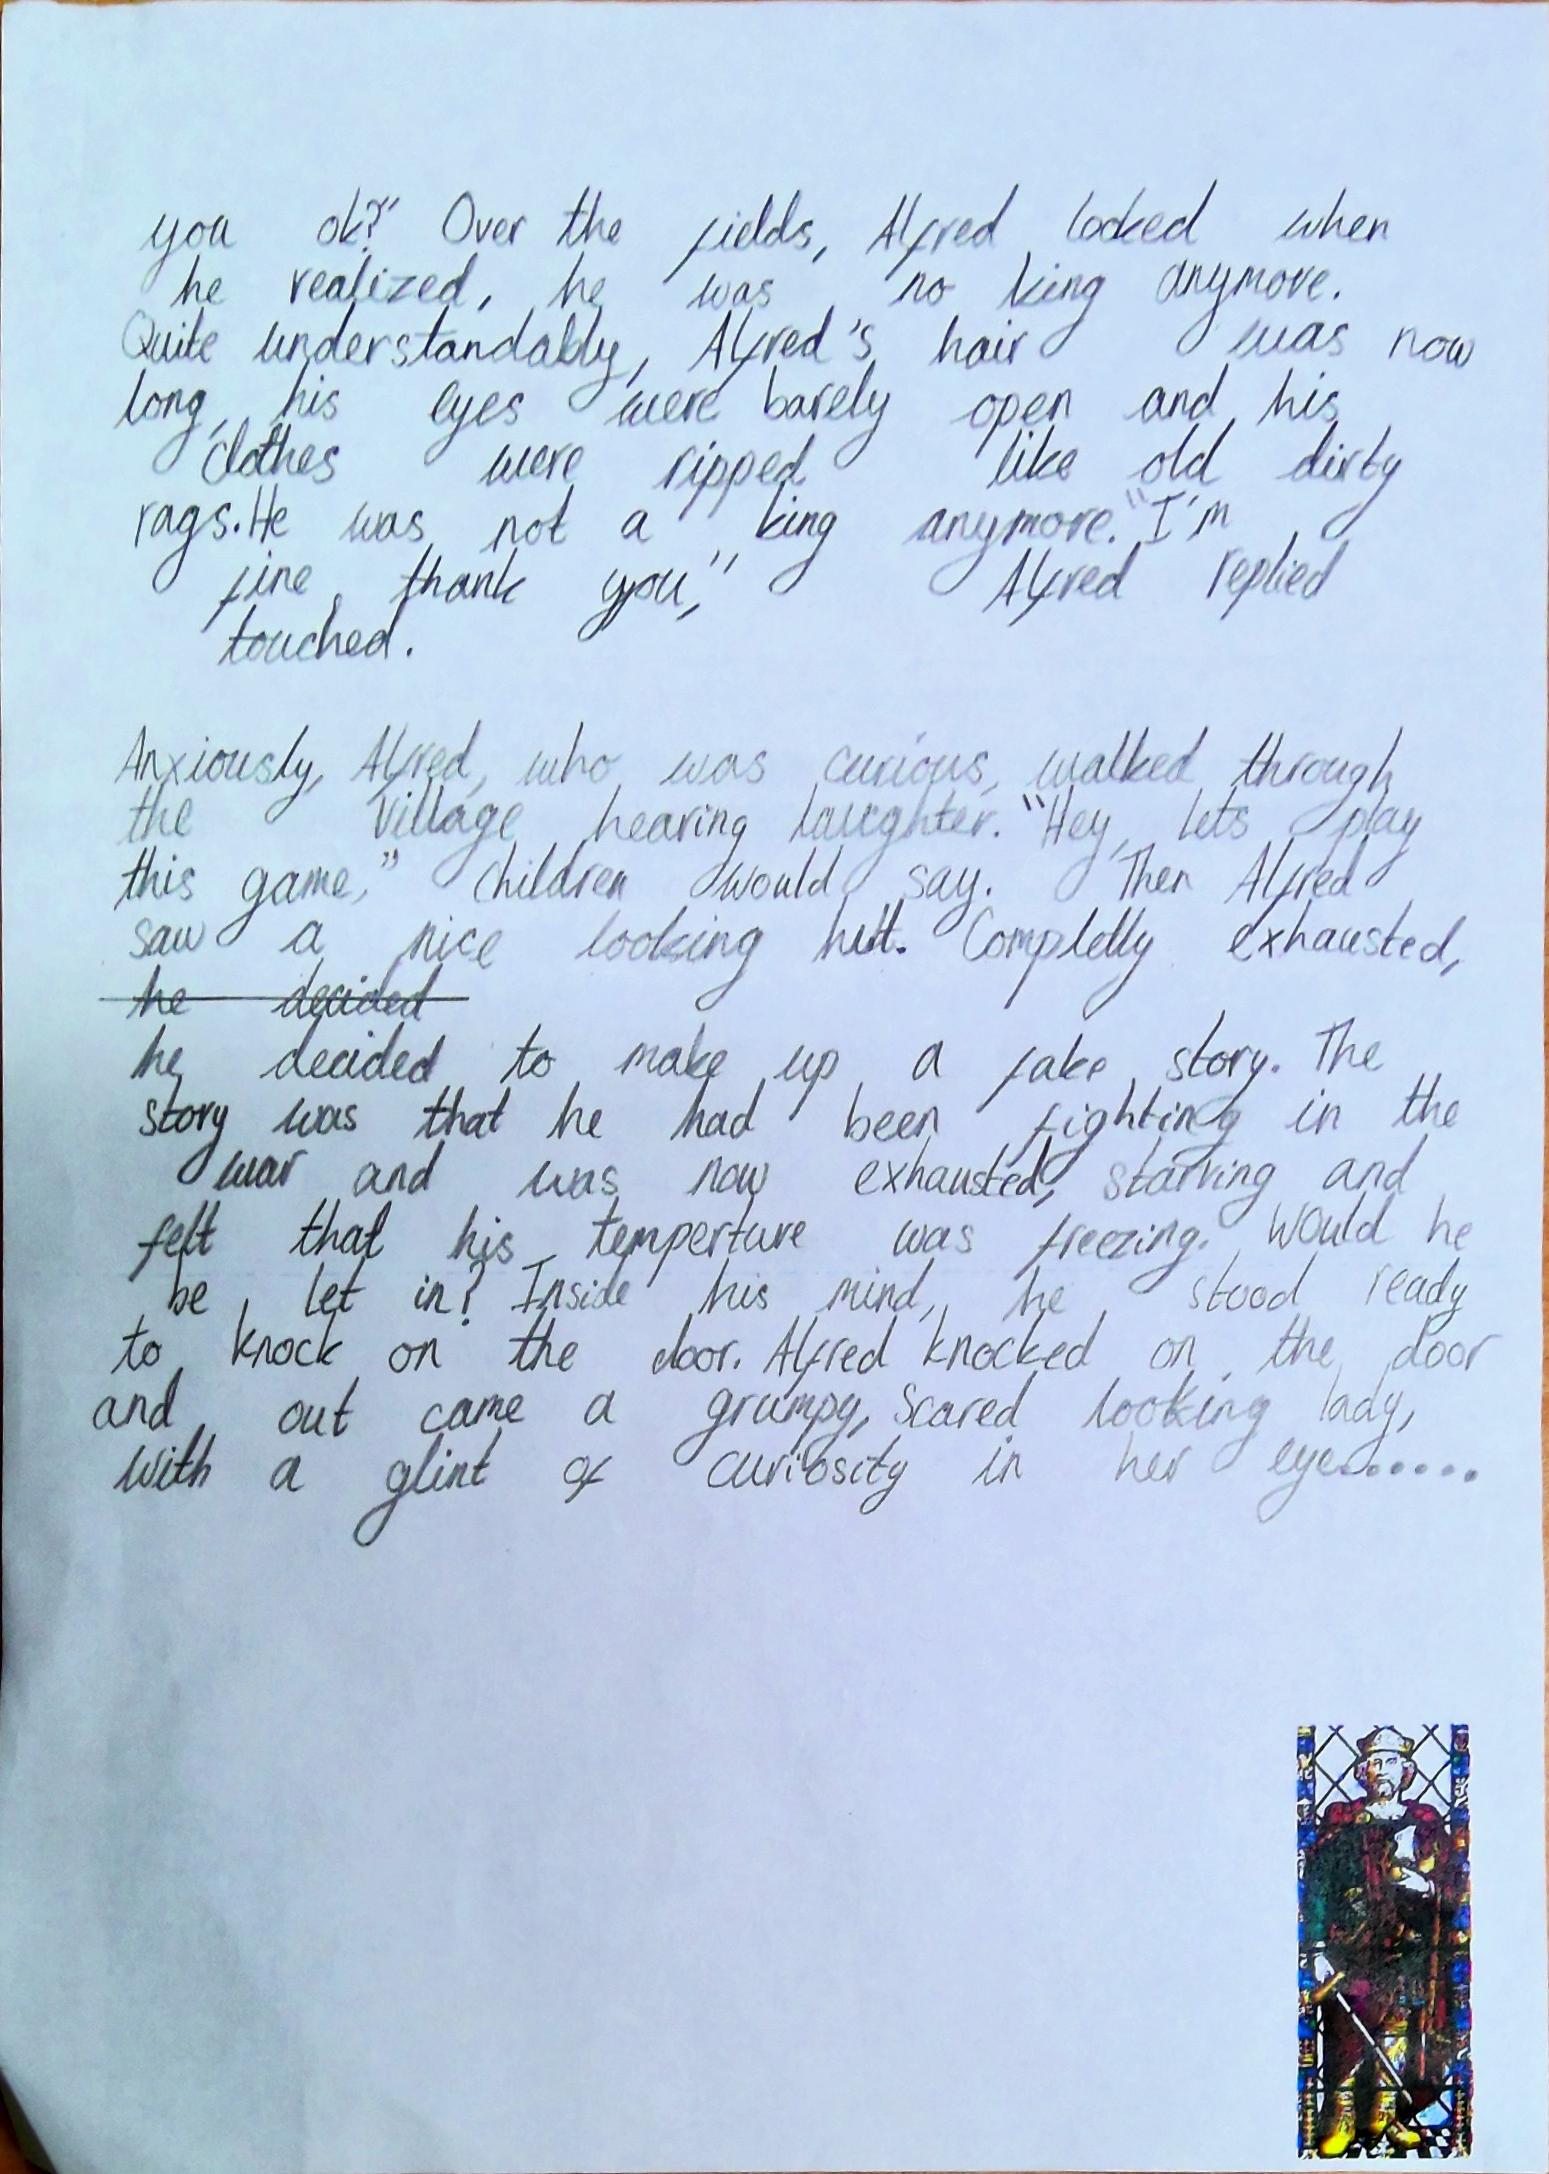 you ok?" Over the fields, Alfred looked when
he realized, he was no king anymore.
Quite understandably, Alfred's hair was now
long, his eyes were barely open and his
clothes were ripped like old dirty
rags. He was not a king anymore. "I'm
fine, thank you," Alfred replied
touched.
Anxiously, Alfred, who was curious, walked through
the village hearing laughter. "Hey, lets play
this game," children would say. Then Alfred
saw a nice looking hutt. Completly exhausted,
he decided
he decided to make up a fake story. The
story was that he had been fighting in the
war and was now exhausted, starving and
felt that his temperture was freezing. Would he
be let in? Inside his mind, he stood ready
to knock on the door. Alfred knocked on the door
and out came a grumpy, scared looking lady,
with a glint of curiosity in her eye......